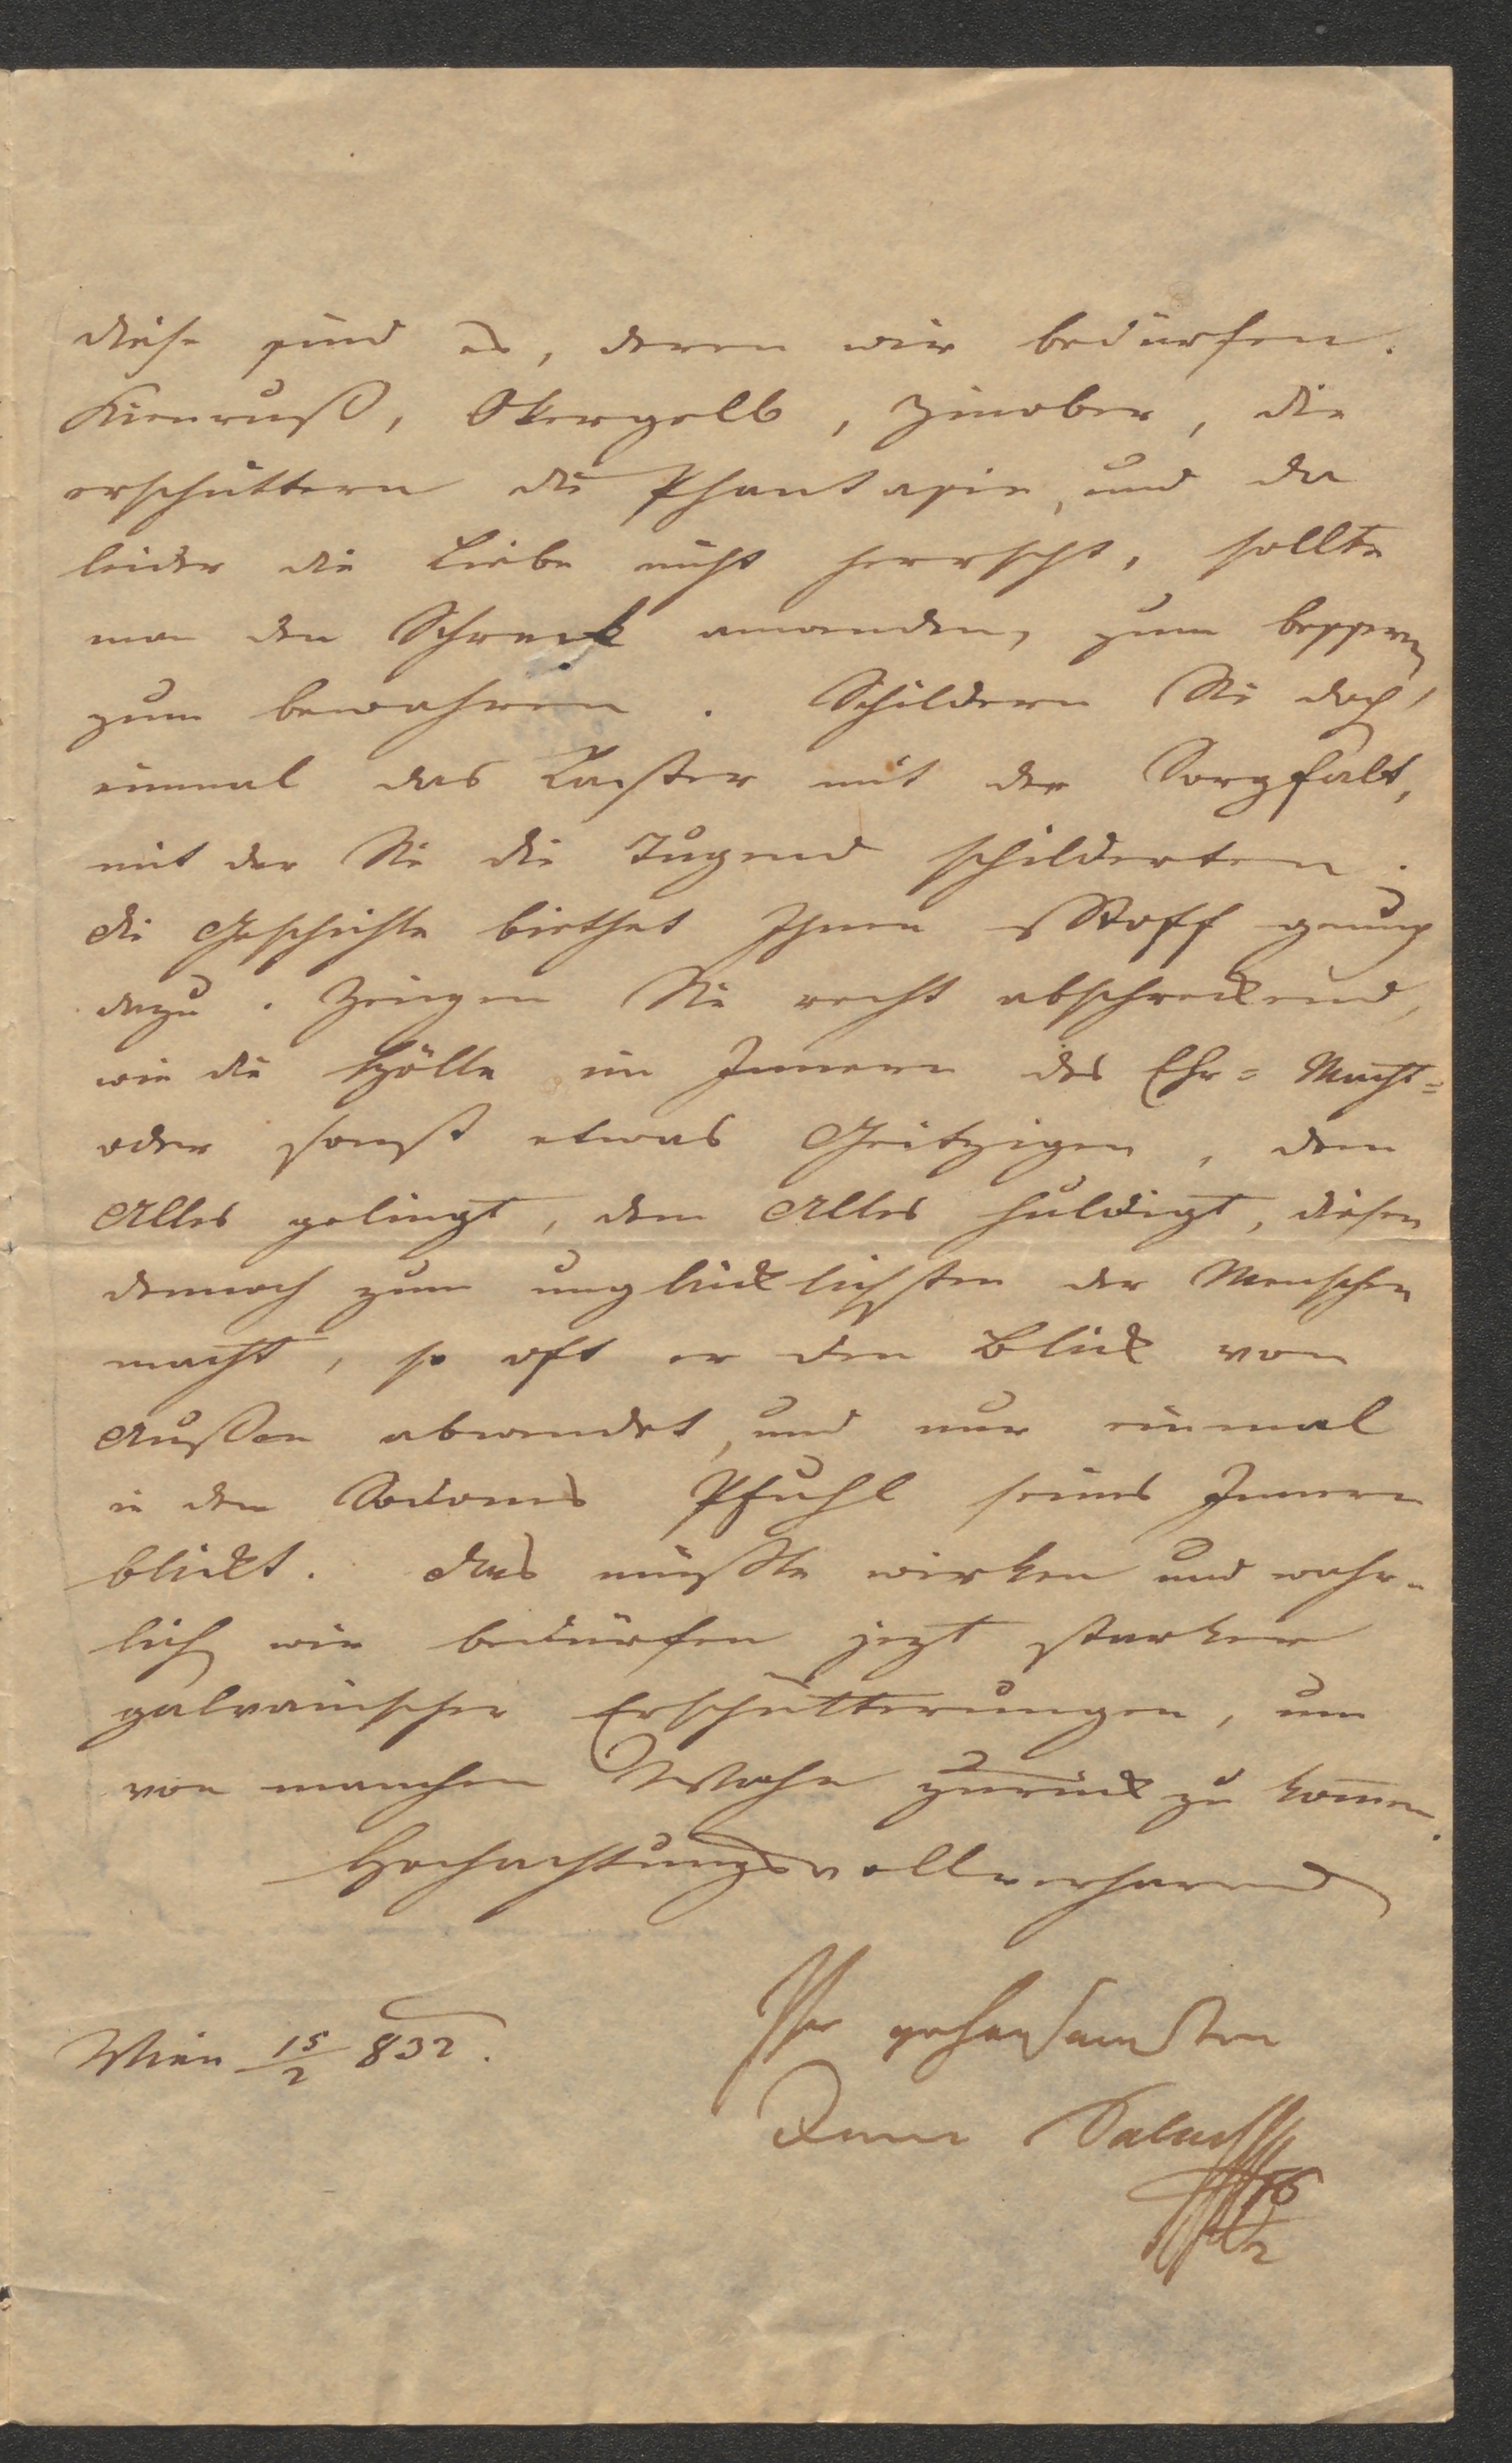 diese sind es, deren wir bedürfen.
Kienruß, Okergelb, Zinober, die
erschüttern die Phantasie, und da
leider die Liebe nicht herrscht, sollte
man den Schreck anwenden, zum bessern,
zum bewahren. Schildern Sie doch
einmal das Laster mit der Sorgfalt,
mit der Sie die Tugend schilderten.
Die Geschichte biethet Ihnen Stoff genug
dazu. Zeigen Sie recht abschreckend,
wie die Hölle im Innern des Ehr- Macht-
oder sonst etwas Geitzigen, dem
Alles gelingt, dem Alles huldigt, diesen
dennoch zum unglücklichsten der Menschen
macht, so oft er den Blick von
Außen abwendet, und nur einmal
in den Sodoms Pfuhl seines Innern
blickt. Das müßte wirken und wahr-
lich wir bedürfen jezt starker
galvanischer Erschütterungen, um
von manchen Wahn zurück zu kommen.
Hochachtungsvoll verharrend
Ihr gehorsamsten
Wien 15/2 832.